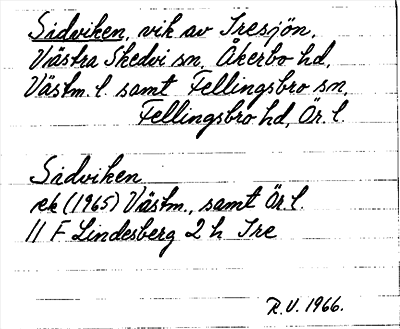 Sidviken, vik av Tresjön,
Västra Skedvi sn, Åkerbo hd,
Västm. l. samt Fellingsbro sn,
Fellingsbro hd, Ör. l.
Sidviken
ek (1965) Västm., samt Ör l.
11 F Lindesberg 2 h Tre
R.V. 1966.